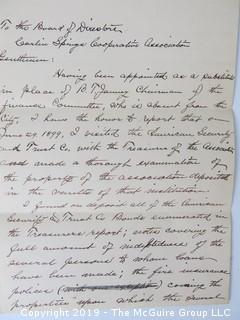 To the Board of Directors
Carlin Springs Cooperative Association
Gentlemen:
Having been appointed as a substitute
in place of B. T. Janney Chairman of the
Finance Committee, who is absent from the
City, I have the honor to report that on
June 29, 1899, I visited the American Security
and Trust Co. with the Treasurer of the Association
and made a thorough examination of
the property of the association deposited
in the vaults of that institution.
I found on deposit all of the American
Security & Trust Co Bonds enumerated in
the Treasurers report; notes covering the
full amount of indebtedness of the
several persons to whom loans
have been made; the fire insurance
policies covering the
properties upon which the several
Copyright 2019 - McGuire Group LLC